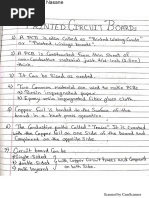 Nakane
PRINTED CIRCUIT BOARDS
1) A PCB is also called as "Printed Wiring Cards"
or "Printed Wiring Boards".
2) A PCB is Constructed from thin Sheet of
non-Conductive material
3) It Can be Rigid as needed.
4) Two Common material are used to make PCB
Resin impregnated paper
Epoxy resin impregnated fiber glass cloth.
5) Copper foil is bonded to the Surface of the
board on one or both sides.
6) The Conductive paths Called "Traces" It is Created
with the Copper foil on One Side of the board and
Component on the opposite Side.
7) Circuit board Can be
Single Sided
Double Sided
with Copper Circuit traces and Components
Together.
Scanned by CamScanner